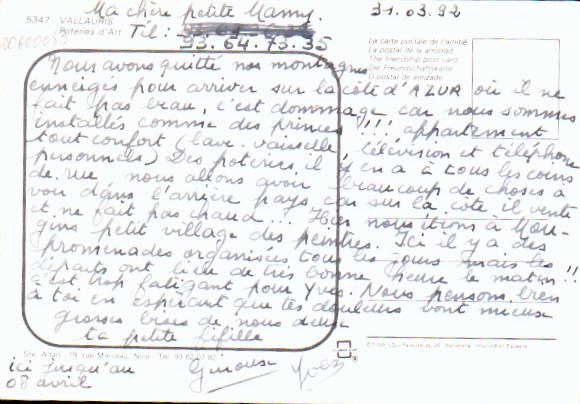 Ma chère petite Mamy.
31.03.92
5347 VALLAURIS
Poteries d'Art
Tél :
93.64.73.35
La carte postale de l'amitié
La postal de la amistad
The friendship post card
Die Freundschaftskarte
O postal de amizade
Nous avons quitté nos montagnes
enneigés pour arriver sur la côte d'AZUR où il ne
fait pas beau, c'est dommage car nous sommes
installés comme des princes !!! appartement
tout confort (lave-vaisselle, télévision et téléphone
personnels) Des poteries il y en a à tous les coins
de rue nous allons avoir beaucoup de choses à
voir dans l'arrière pays car sur la côte il vente
et ne fait pas chaud... Hier nous étions à Mou-
gins petit village des peintres. Ici il y a des
promenades organisées tous les jours mais les
départs ont lieu de très bonne heure le matin !!
c'est trop fatigant pour Yves. Nous pensons bien
à toi en espérant que tes douleurs vont mieux
grosses bises de nous deux
ta petite fifille
Ste. Altari - 19, rue Marceau, Nice - Tél. 93.62.07.82
ici jusqu'au
08 avril
Yves